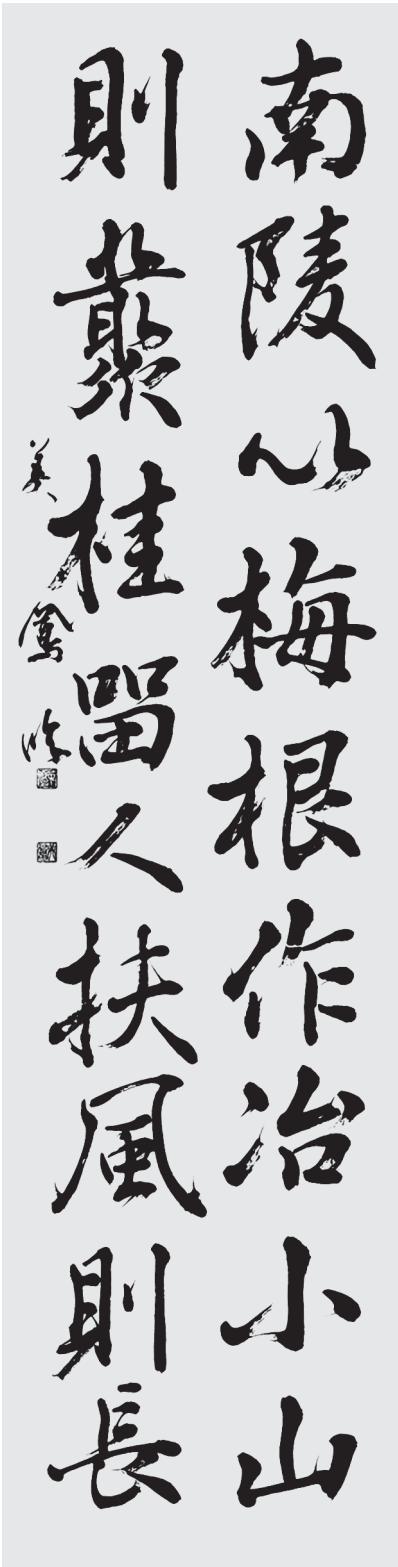 南陵以梅根作冶小山
則叢桂留人扶風則長
美鳳臨